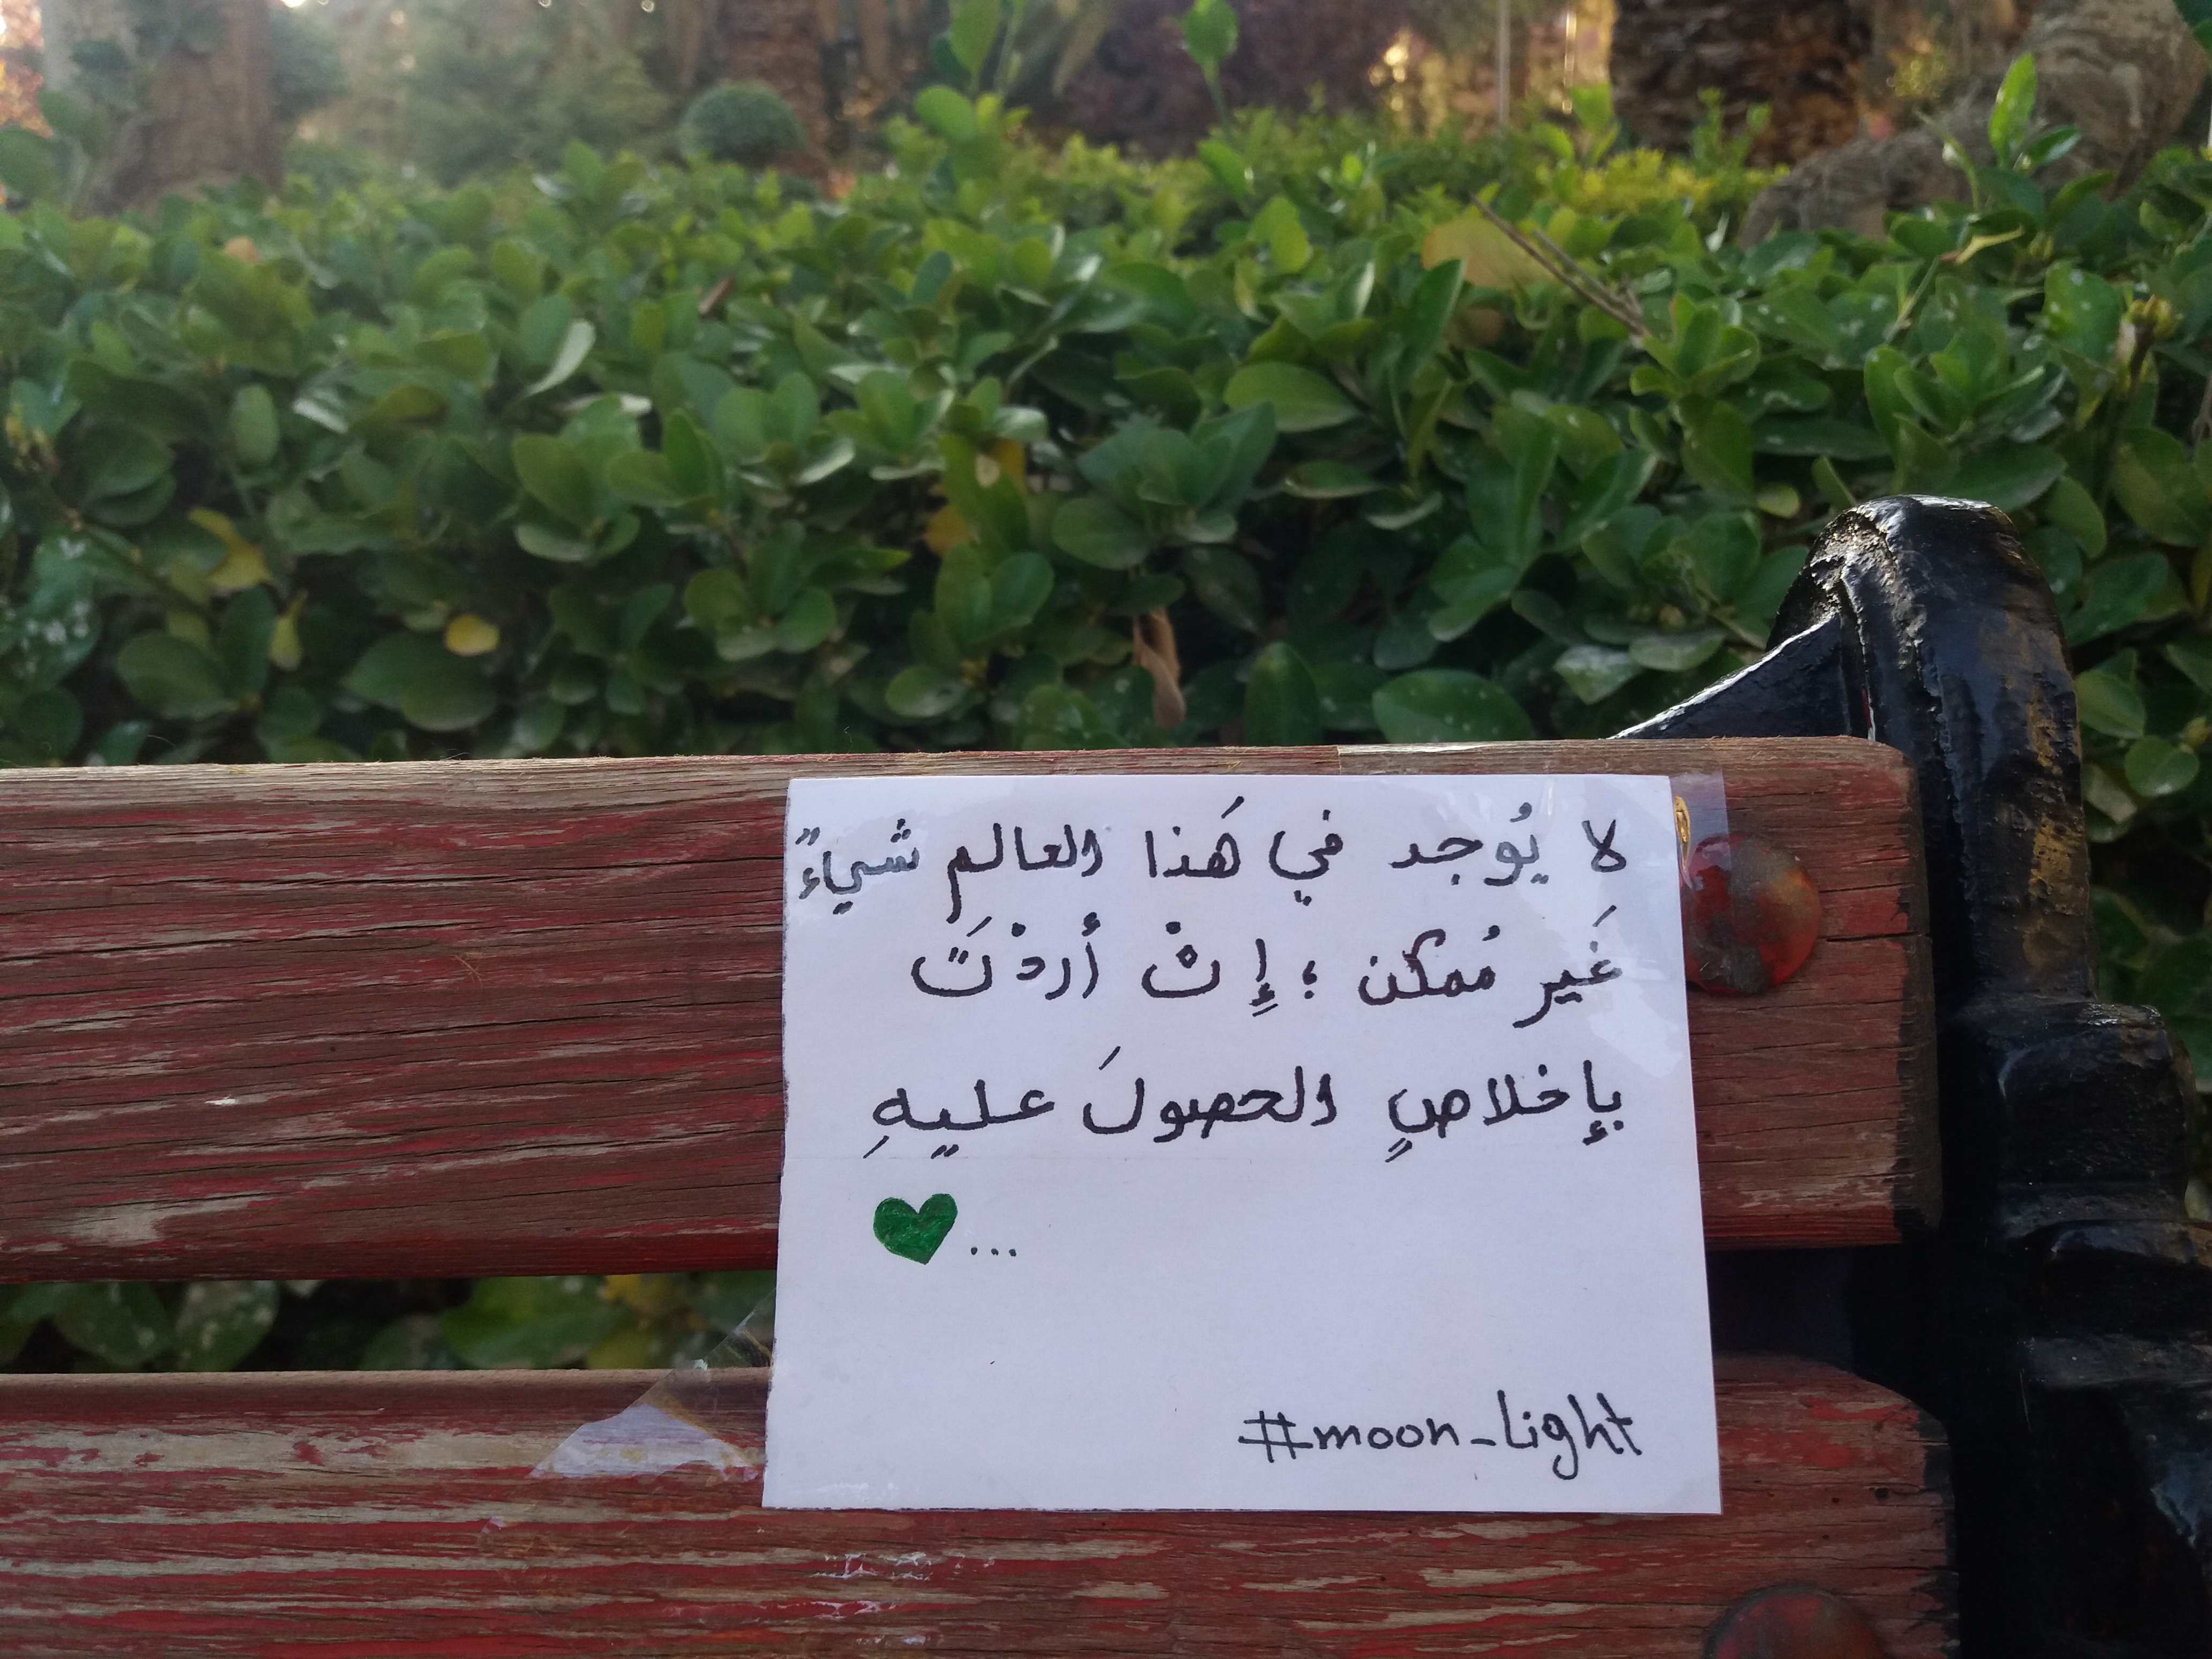 لا يُوجد في هَذا العالم شيءً
غَير مُمكن ؛ إِنْ أردْتَ
بإخلاصٍ الحصولَ عليهِ
...
#moon_light